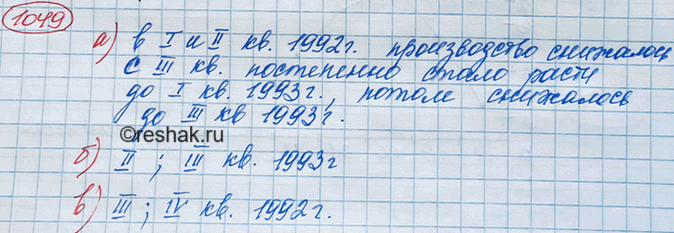 1049
а) в I и II кв. 1992г. производство снижалось
с III кв. постепенно стало расти
до I кв. 1993г., потом снижалось
до III кв 1993г.
©reshak.ru
б) II ; III кв. 1993г
в) III ; IV кв. 1992г.